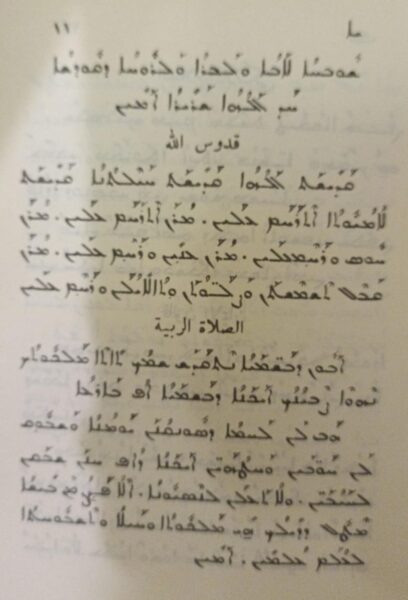 ܝܐ ١١
ܫܘܒܚܐ ܠܐܒܐ ܘܠܒܪܐ ܘܠܪܘܚܐ ܕܩܘܕܫܐ
ܚܕ ܐܠܗܐ ܫܪܝܪܐ ܐܡܝܢ
قدوس الله
ܩܕܝܫܬ ܐܠܗܐ ܩܕܝܫܬ ܚܝܠܬܢܐ ܩܕܝܫܬ
ܠܐܡܝܘܬܐ ܐܬܪܚܡ ܥܠܝܢ. ܡܪܢ ܐܬܪܚܡ ܥܠܝܢ. ܡܪܢ
ܚܘܣ ܘܪܚܡܥܠܝܢ. ܡܪܢ ܥܢܝܢ ܘܪܚܡ ܥܠܝܢ. ܡܪܢ
ܩܒܠ ܬܫܡܫܬܢ ܘܨܠܘܬܢ ܘܪܚܡ ܥܠܝܢ
الصلاة الربية
ܐܒܘܢ ܕܒܫܡܝܐ ܢܬܩܕܫ ܫܡܟ ܬܐܬܐ ܡܠܟܘܬܟ
ܢܗܘܐ ܨܒܝܢܟ ܐܝܟܢܐ ܕܒܫܡܝܐ ܐܦ ܒܐܪܥܐ
ܗܒ ܠܢ ܠܚܡܐ ܕܣܘܢܩܢܢ ܝܘܡܢܐ ܘܫܒܘܩ
ܠܢ ܚܘܒܝܢ ܘܚܛܗܝܢ ܐܝܟܢܐ ܕܐܦ ܚܢܢ ܫܒܩܢ
ܠܚܝܒܝܢ. ܘܠܐ ܬܥܠܢ ܠܢܣܝܘܢܐ. ܐܠܐ ܦܨܢ ܡܢ ܒܝܫܐ
ܡܛܠ ܕܕܝܠܟ ܗܝ ܡܠܟܘܬܐ ܘܚܝܠܐ ܘܬܫܒܘܚܬܐ
ܠܥܠܡ ܥܠܡܝܢ. ܐܡܝܢ